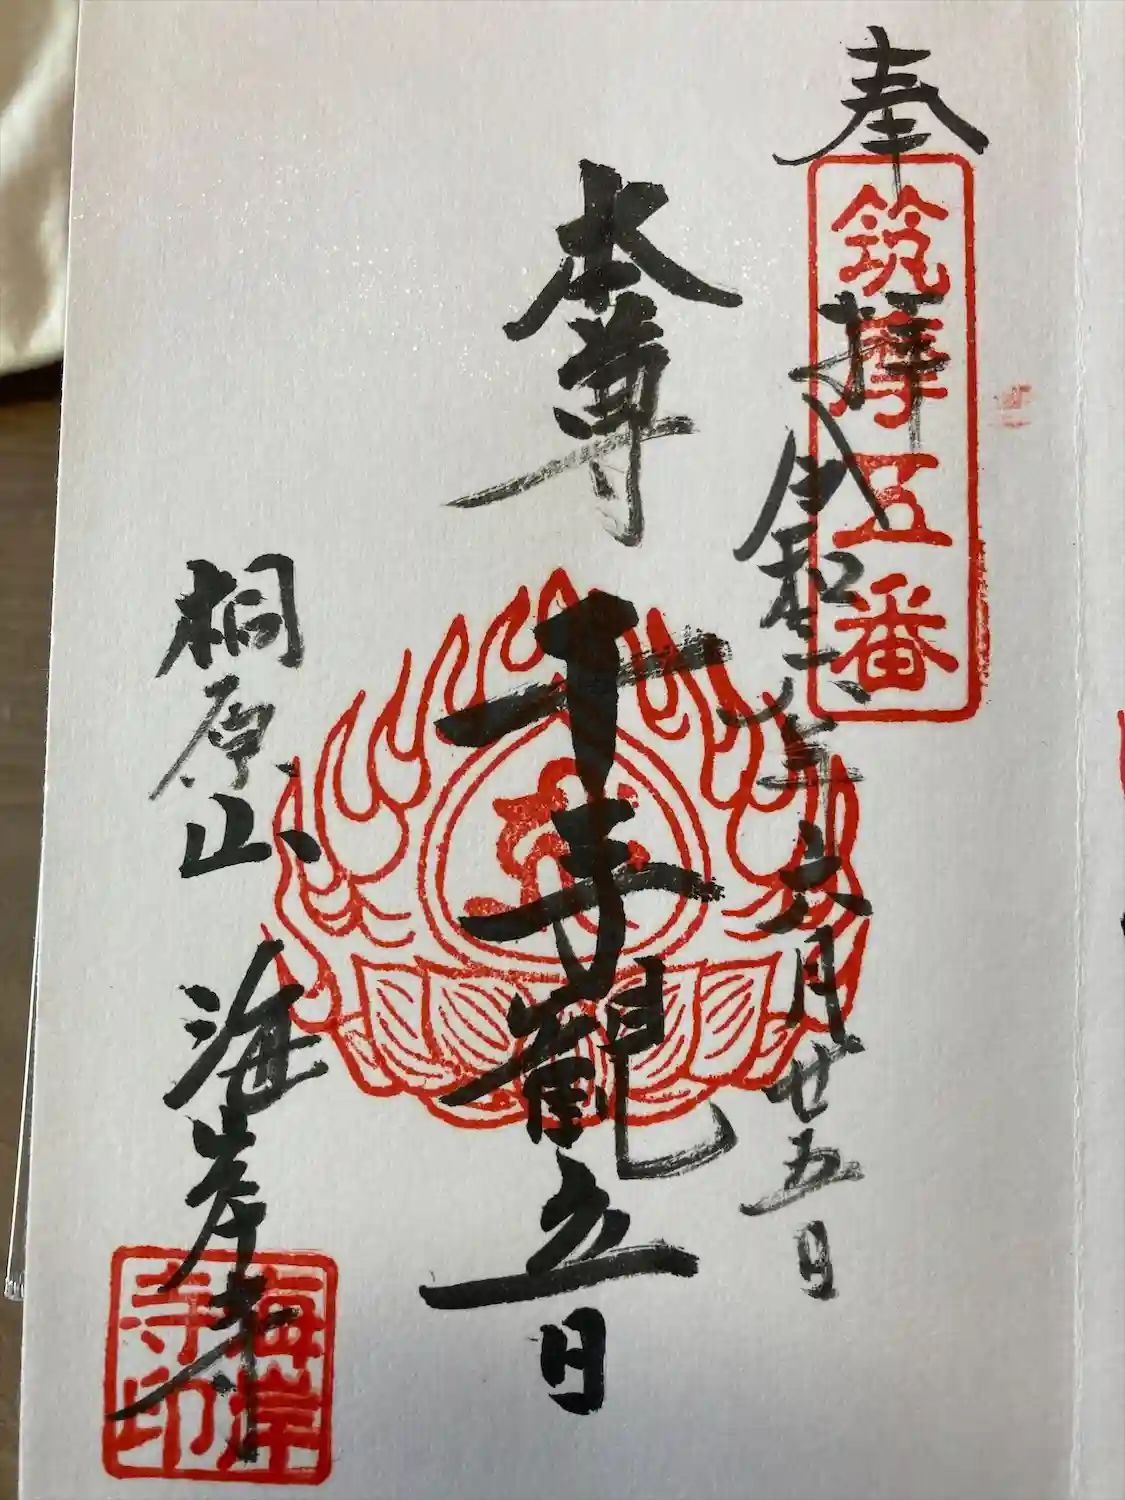 奉拝
筑摩五番
令和六年六月廿五日
本尊
千手観音
桐原山
海岸寺
海岸寺印